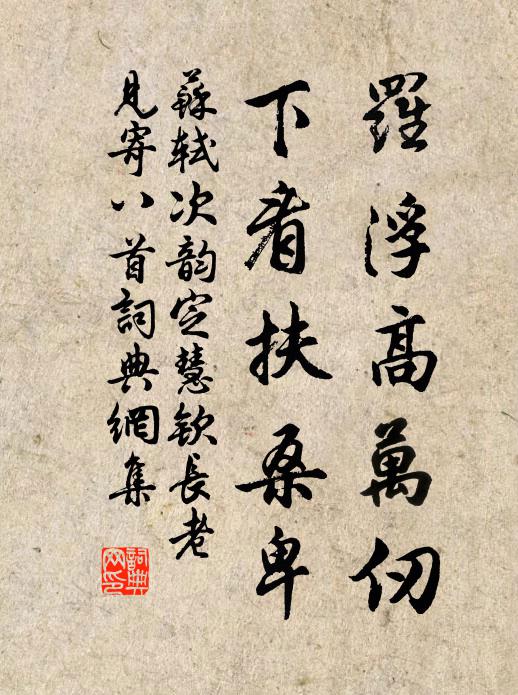 羅浮高萬仞
下看扶桑卑
蘇軾次韵定慧欽長老
見寄八首詞典網集
詞典
网印